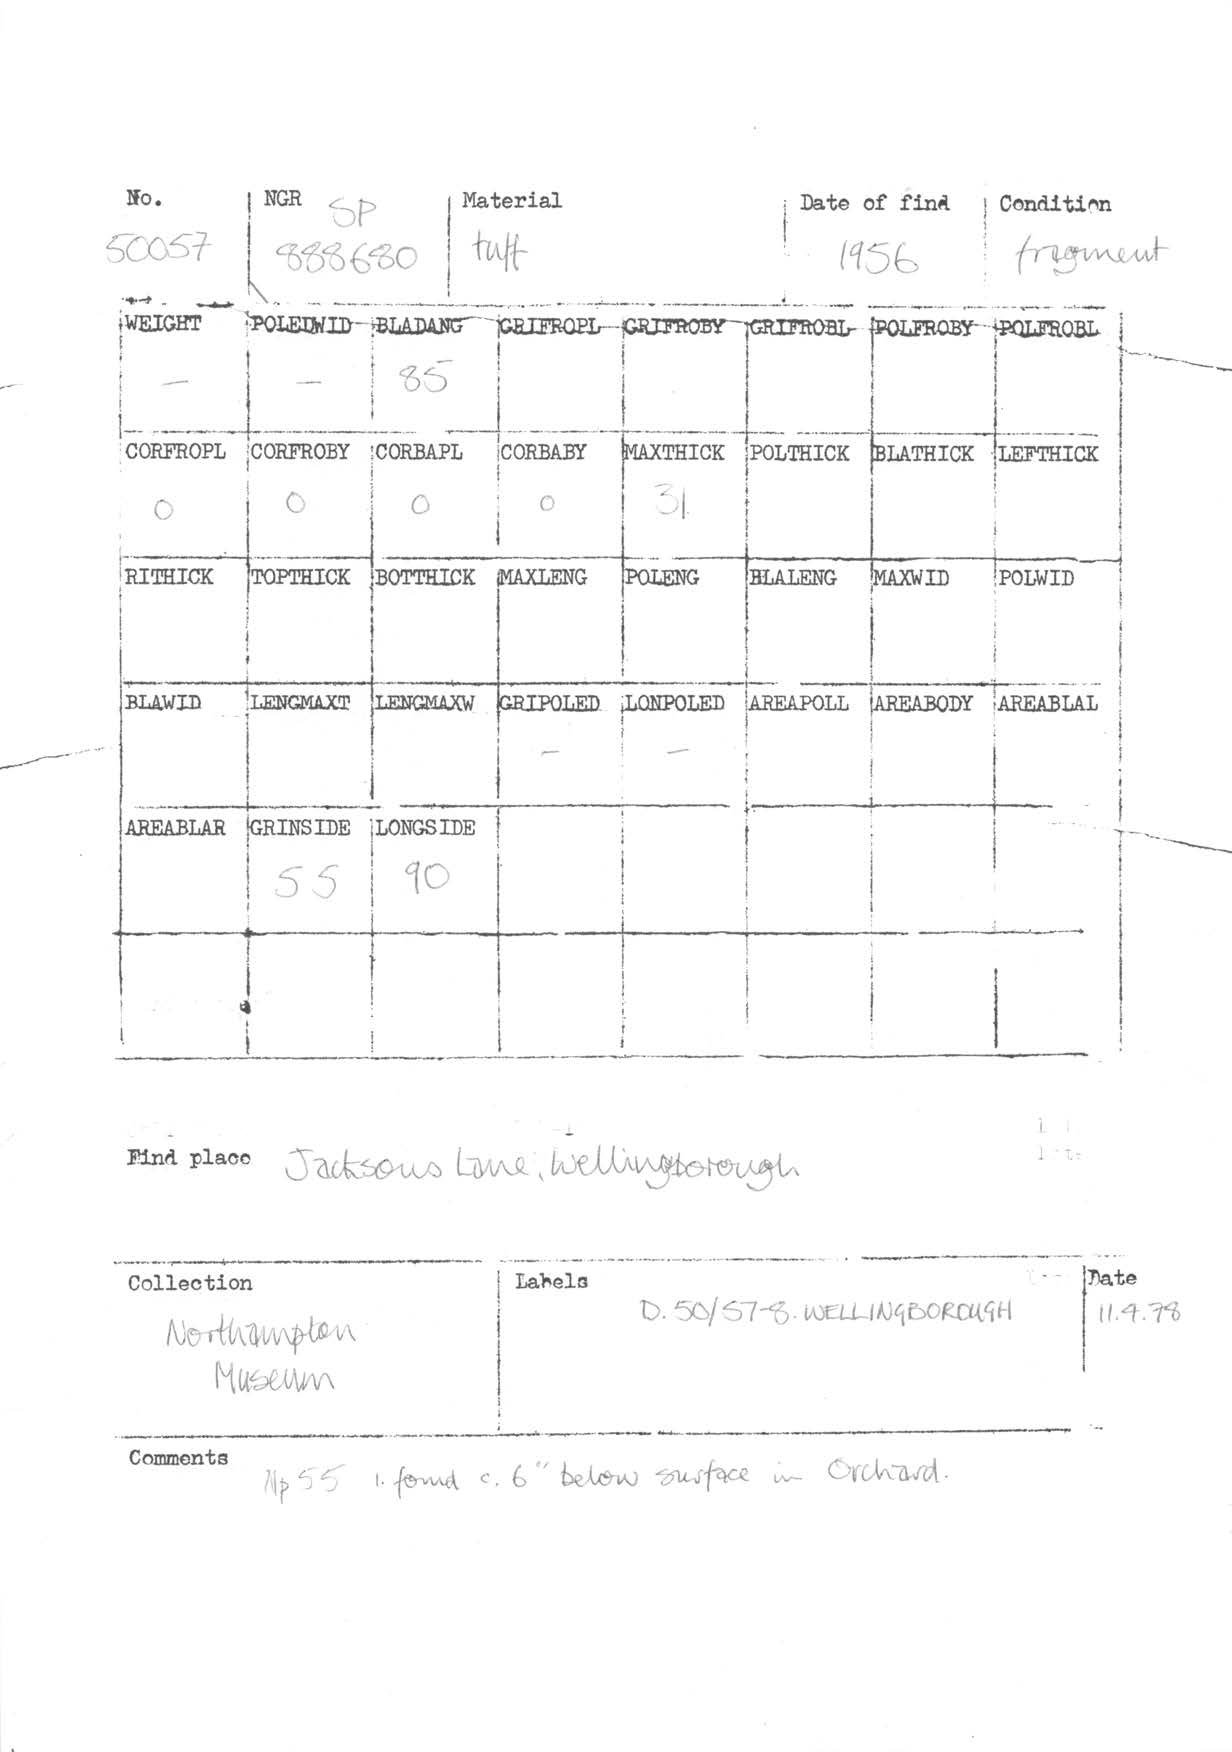 No. NGR SP Material Date of find Condition
50057 888680 tuff 1956 fragment
WEIGHT POLEDWID BLADANG GRIFROPL GRIFROBY GRIFROBL POLFROBY POLFROBL
— — 85
CORFROPL CORFROBY CORBAPL CORBABY MAXTHICK POLTHICK BLATHICK LEFTHICK
0 0 0 0 31
RITHICK TOPTHICK BOTTHICK MAXLENG POLENG BLALENG MAXWID POLWID
BLAWID LENGMAXT LENGMAXW GRIPOLED LONPOLED AREAPOLL AREABODY AREABLAL
— —
AREABLAR GRINSIDE LONGSIDE
55 90
Find place Jacksons Lane, Wellingborough
Collection Labels Date
D.50/57-8. WELLINGBOROUGH 11.4.78
Northampton
Museum
Comments
Np 55 1. found c. 6" below surface in Orchard.